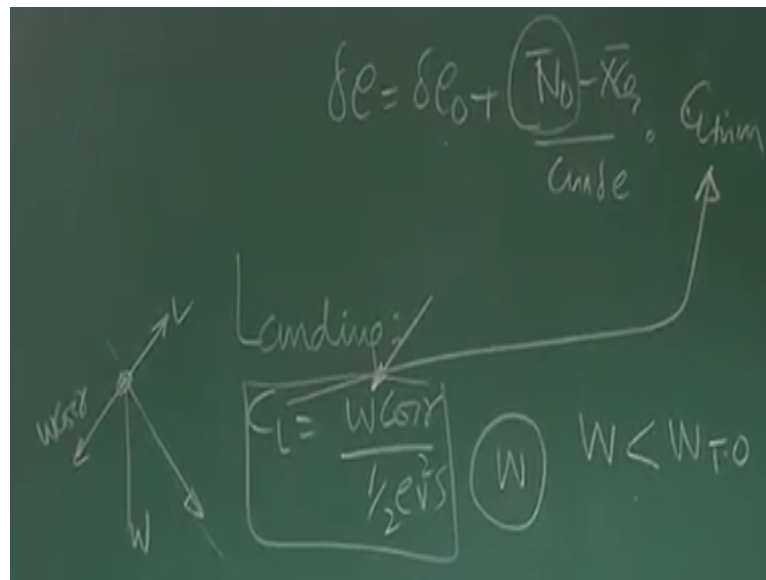 δe = δe₀ + N̄₀ - X̄cg / Cmδe . CLtrim
Landing:
CL = Wcosγ / ½ρV²S
W
W < WT.O
L
Wcosγ
W